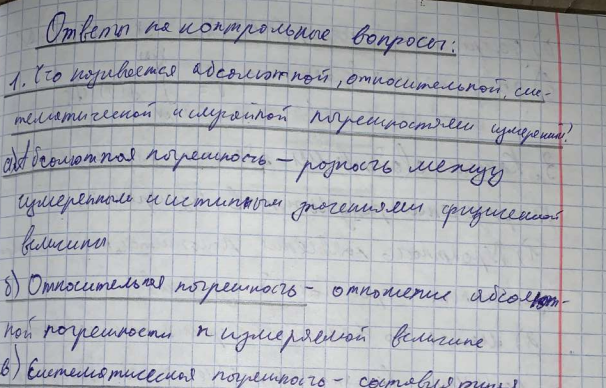 Ответы на контрольные вопросы:
1. Что называется абсолютной, относительной, сис-
тематической и случайной погрешностями измерений?
а) Абсолютная погрешность – разность между
измеренным и истинным значениями физической
величины
б) Относительная погрешность – отношение абсолют-
ной погрешности к измеряемой величине
в) Систематическая погрешность – составляющая